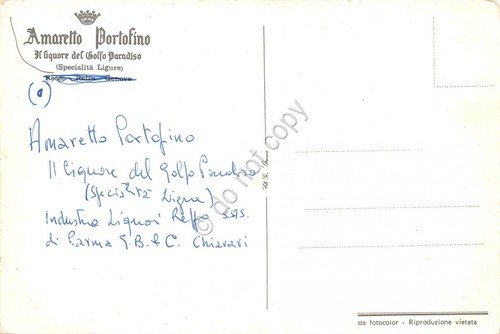 Amaretto Portofino
Il liquore del Golfo Paradiso
(Specialità Ligure)
Amaretto Portofino
Il Liquore del Golfo Paradiso
(Specialità Ligure)
Industria Liquori Reppo sas
di Parma G.B. & C. Chiavari
© do not copy
da fotocolor - Riproduzione vietata